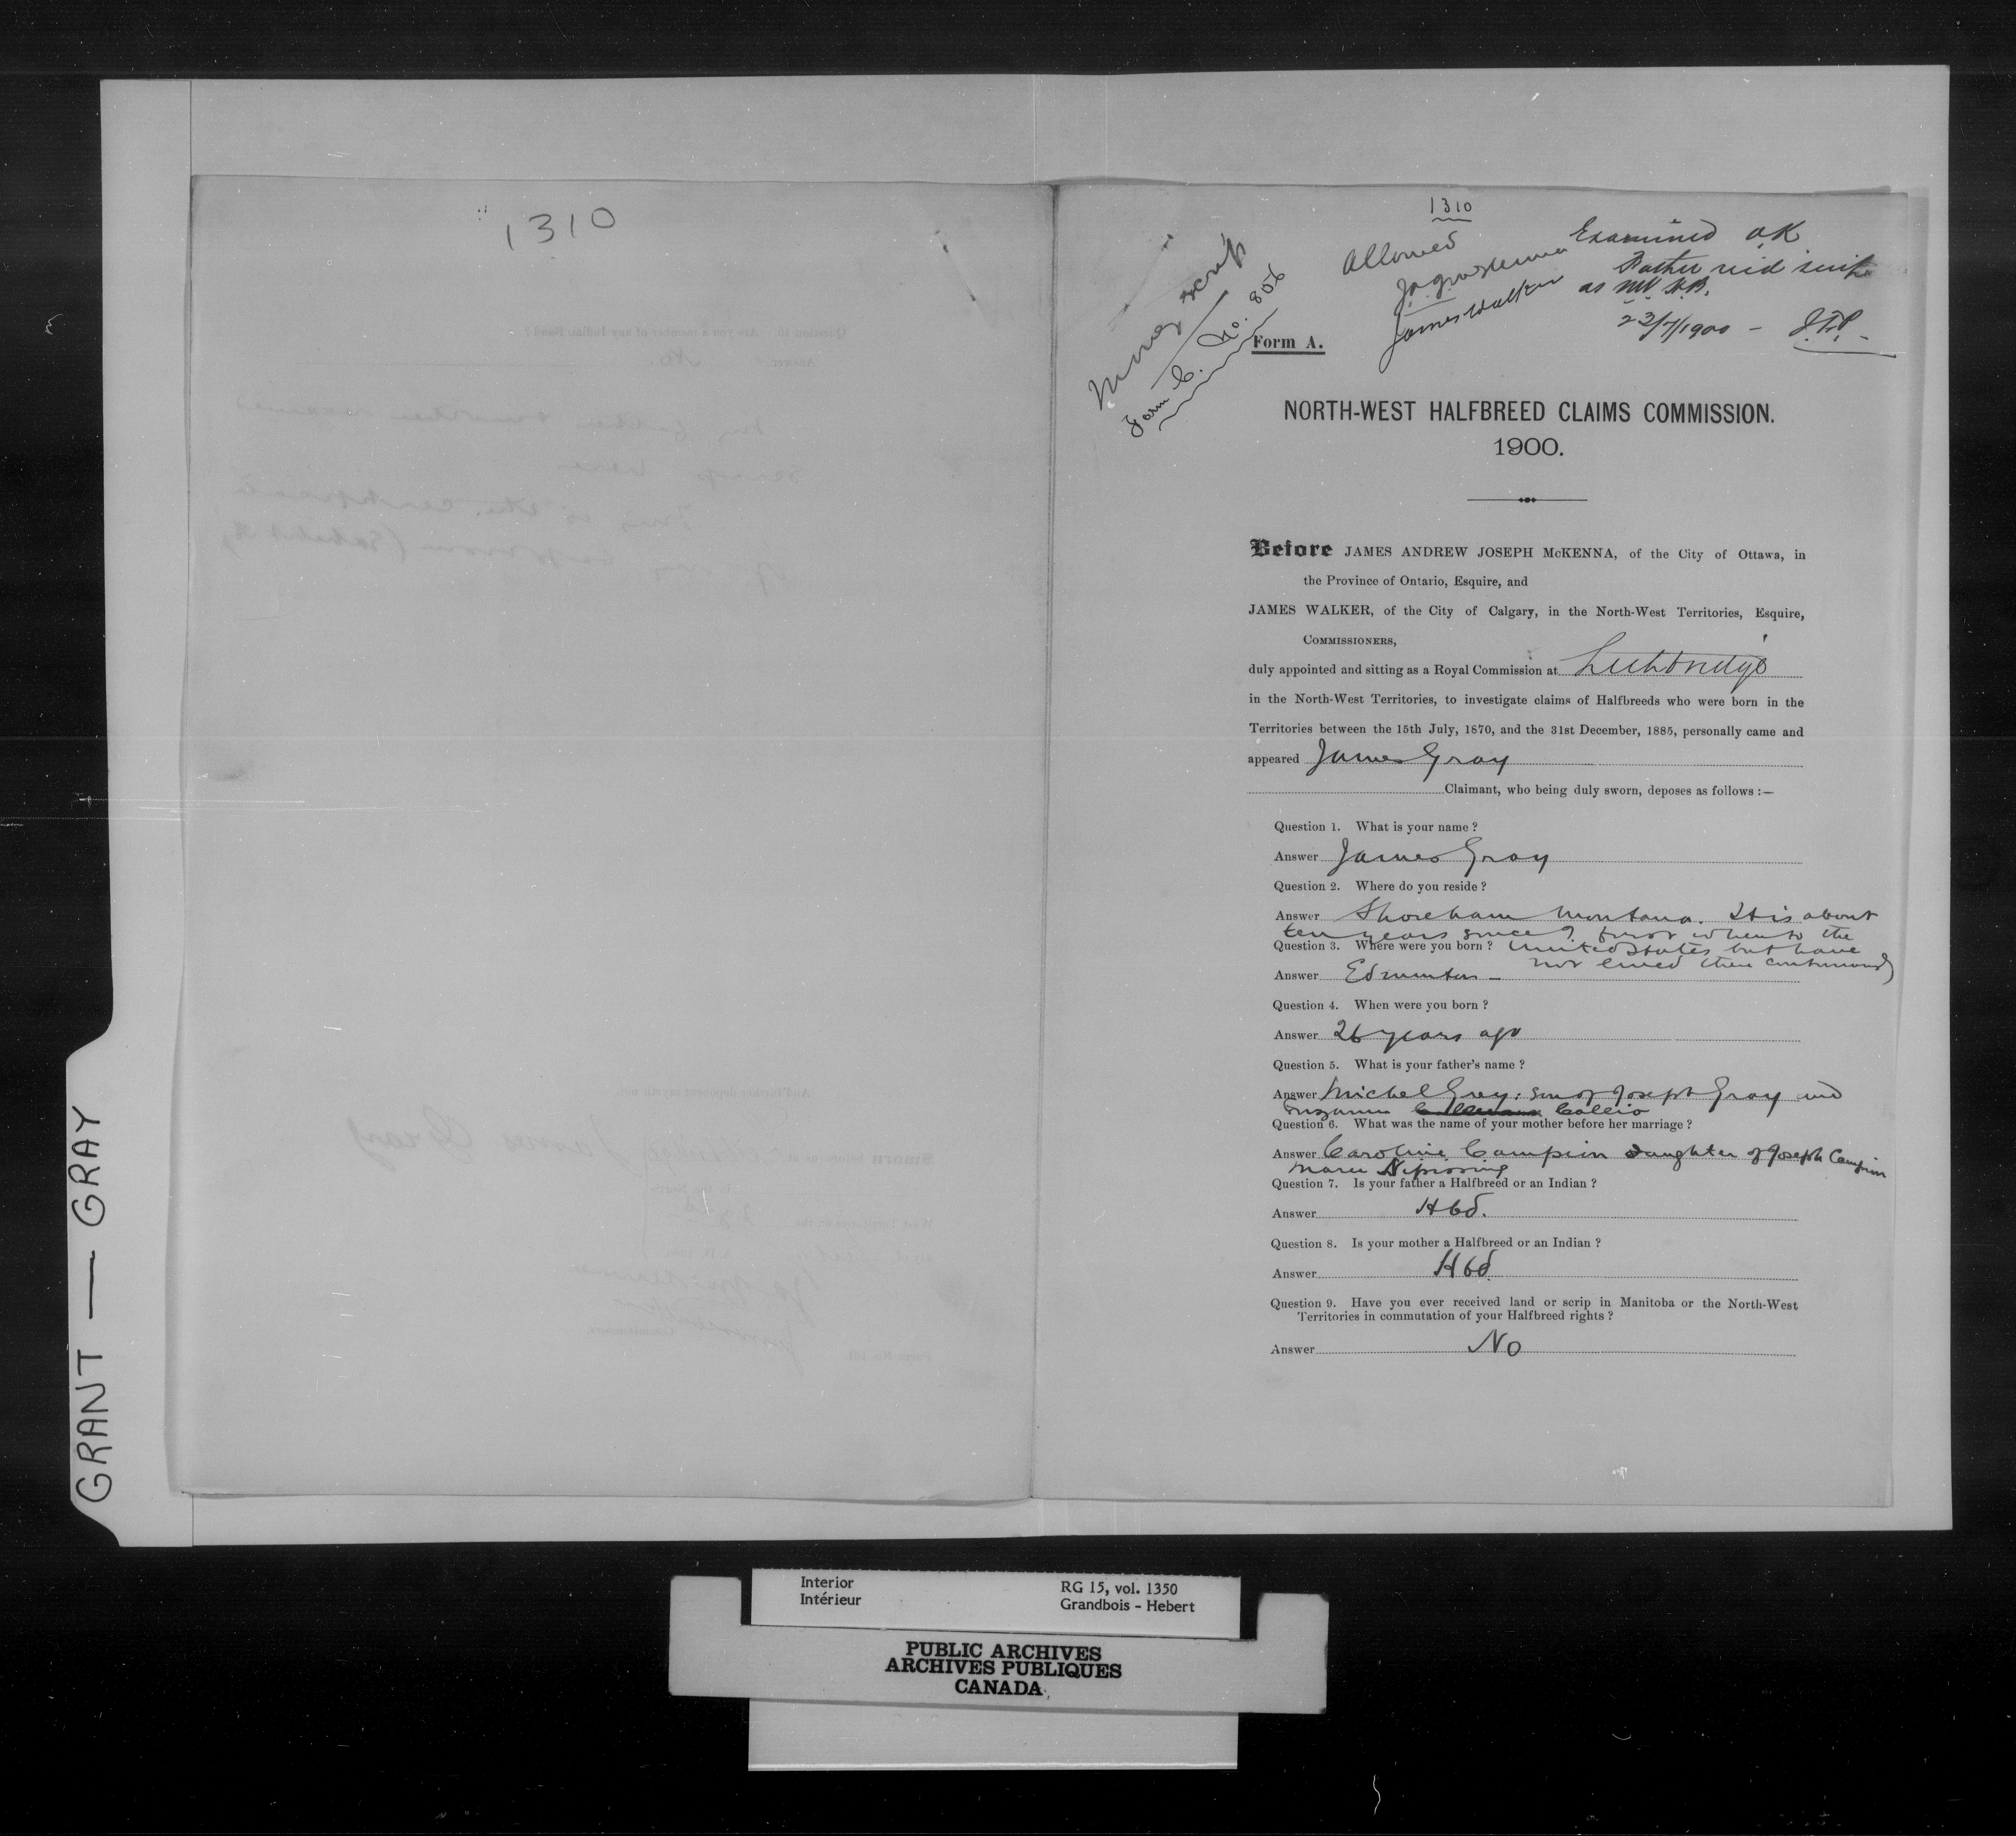 1310
1310
Allowed
JAJ McKenna
James Walker
Examined OK
Father rec'd scrip
as NW H.B.
23/7/1900 - 
Money scrip
Form C. No. 806
Form A.
NORTH-WEST HALFBREED CLAIMS COMMISSION.
1900.
Before JAMES ANDREW JOSEPH McKENNA, of the City of Ottawa, in
the Province of Ontario, Esquire, and
JAMES WALKER, of the City of Calgary, in the North-West Territories, Esquire,
COMMISSIONERS,
duly appointed and sitting as a Royal Commission at Lethbridge
in the North-West Territories, to investigate claims of Halfbreeds who were born in the
Territories between the 15th July, 1870, and the 31st December, 1885, personally came and
appeared James Gray
Claimant, who being duly sworn, deposes as follows :—
Question 1. What is your name ?
Answer James Gray
Question 2. Where do you reside ?
Answer Shoreham Montana. It is about
ten years since I first when to the
Question 3. Where were you born ? United States but have
not lived there continuously
Answer Edmonton -
Question 4. When were you born ?
Answer 26 years ago
Question 5. What is your father's name ?
Answer Michel Grey: son of Joseph Gray and
Suzanne Callio
Question 6. What was the name of your mother before her marriage ?
Answer Caroline Campion Daughter of Joseph Campion
Marie Nipissing
Question 7. Is your father a Halfbreed or an Indian ?
Answer Hbd.
Question 8. Is your mother a Halfbreed or an Indian ?
Answer Hbd
Question 9. Have you ever received land or scrip in Manitoba or the North-West
Territories in commutation of your Halfbreed rights ?
Answer No
GRANT — GRAY
Interior
Intérieur
RG 15, vol. 1350
Grandbois - Hebert
PUBLIC ARCHIVES
ARCHIVES PUBLIQUES
CANADA